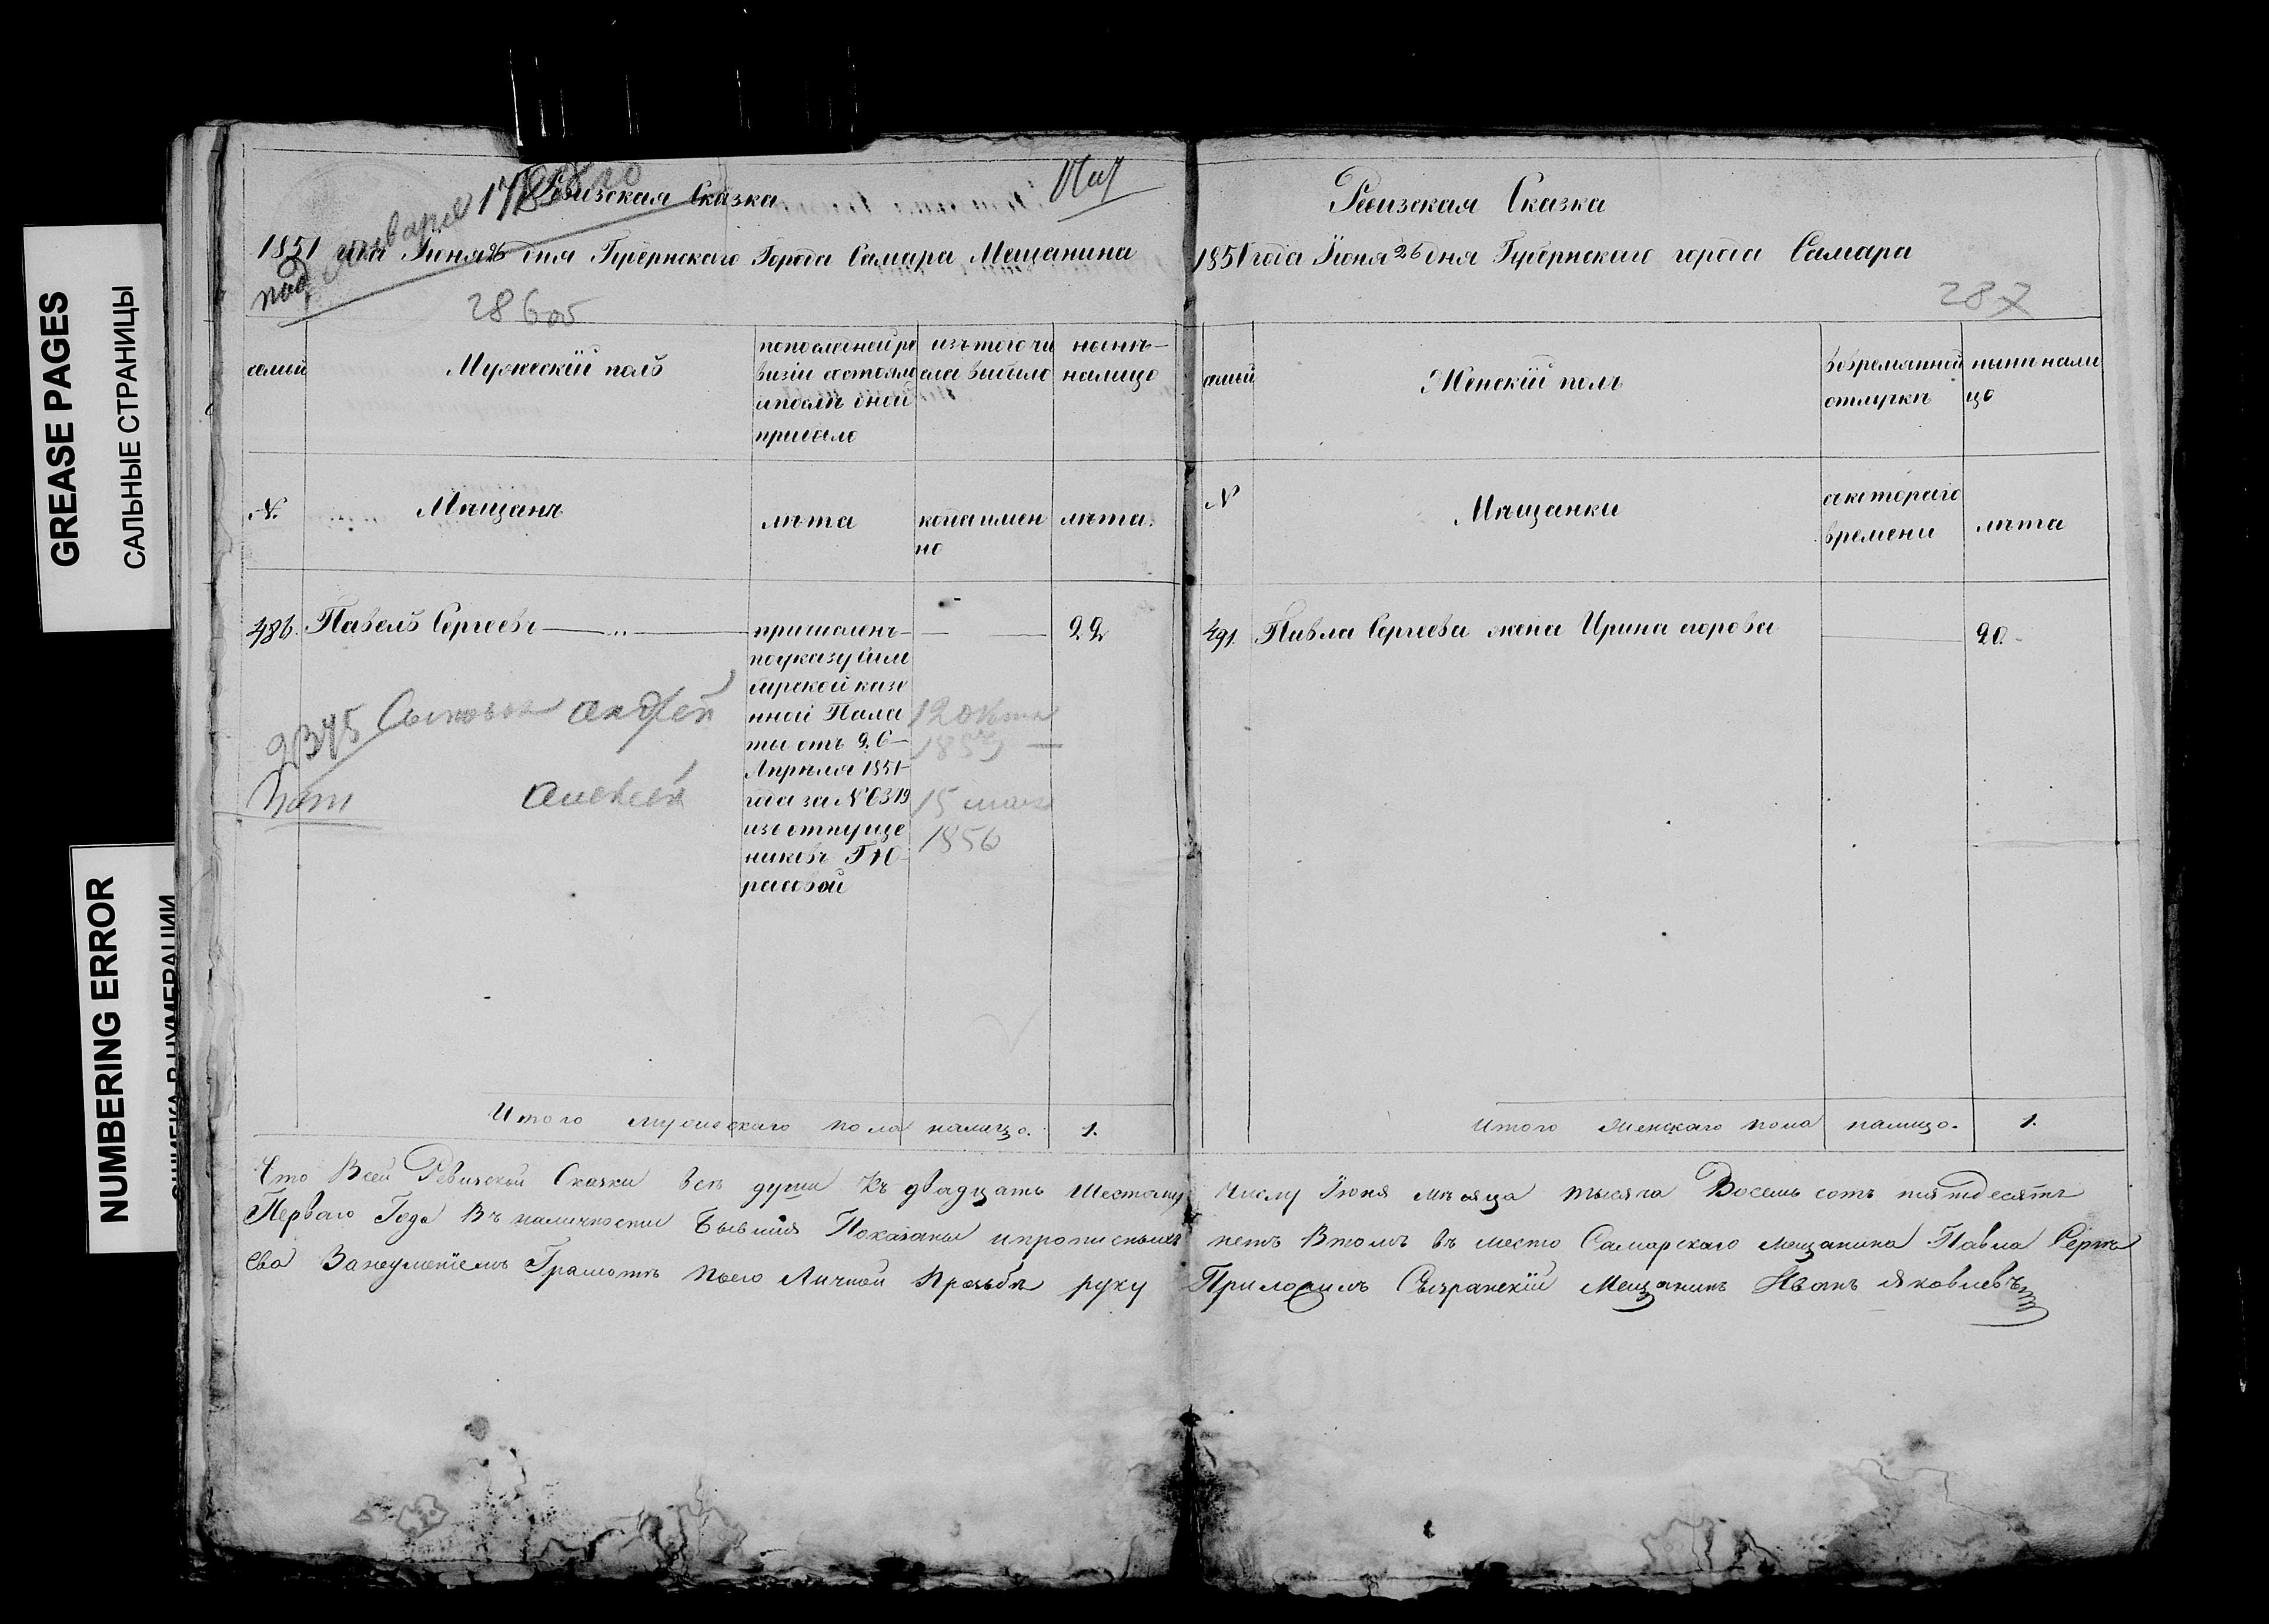 GREASE PAGES
САЛЬНЫЕ СТРАНИЦЫ
NUMBERING ERROR
Ревизская Сказка
1851 года Іюня 26 дня Губернскаго Города Самара Мещанина
286 об
семьи
Мужескій полъ
попоследней ре
визіи состояло
ипосль оной
прибыло
изъ того чи
сла выбыло
нынѣ
налицо
N.
Мѣщанъ
лѣта
когда имен
но
лѣта.
486. Павелъ Сергеевъ
причисленъ
поуказу Сим
бирской казе
нной Пала
ты отъ 26
Апрѣля 1851
года за N 6319
изъ отпуще
никовъ Г Ю
расовой
22
2345 Сыновья Андрей
12 Октя
1853
Алексей
15 мая
1856
Итого мужескаго пола налицо. 1.
Ревизская Сказка
1851 года Іюня 26 дня Губернскаго города Самара
287
семьи
Женскій полъ
вовремянной
отлучкѣ
ныни нали
цо
N
Мѣщанки
скотораго
времени
лѣта
491. Павла Сергеева жена Ирина
20.
Итого Женскаго пола налицо. 1.
Что Всей Ревизской Сказки всѣ души къ двадцать Шестому Числу Іюня мѣсяца тысяча Восемь сотъ пятдесятъ
Перваго Года Въ наличности Бывшія Показаны ипрописныхъ нетъ Втомъ въ место Самарскаго мещанина Павла Серге
ева Занеуменіемъ Грамоте поего Личной Прозьбѣ руку Приложилъ Сызранскій Мещанинъ Иванъ Яковлевъ